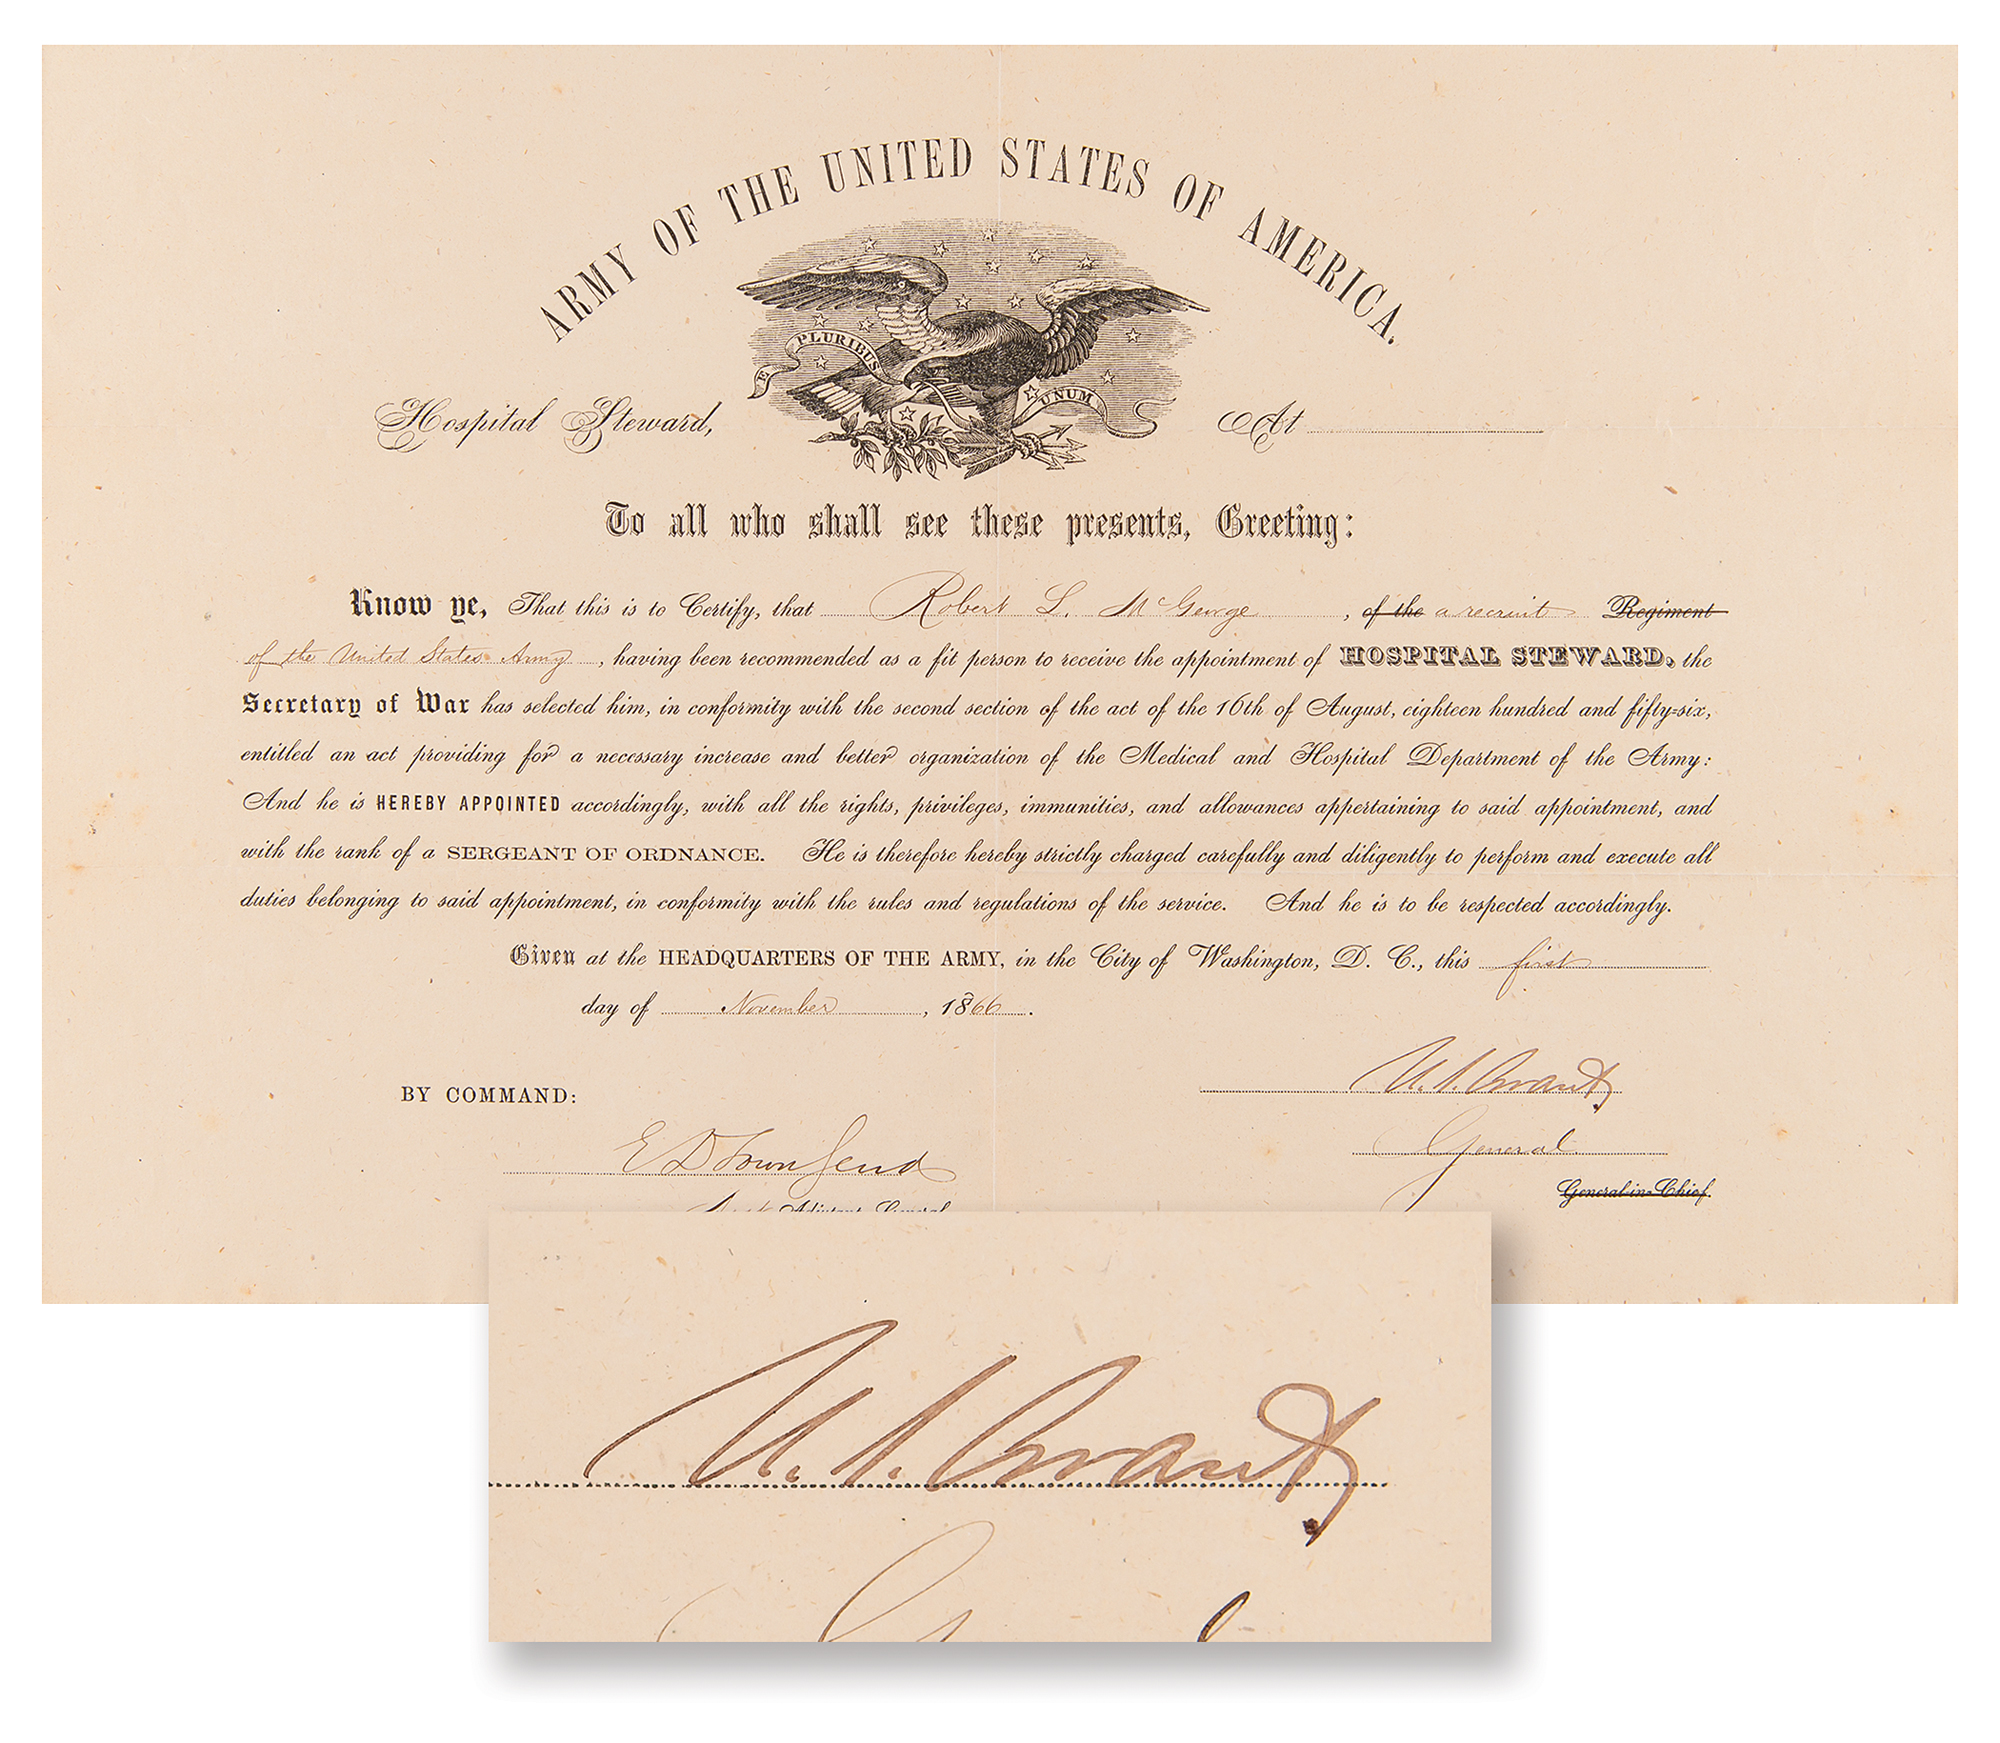 ARMY OF THE UNITED STATES OF AMERICA.
E PLURIBUS UNUM
Hospital Steward, At
To all who shall see these presents, Greeting:
Know ye, That this is to Certify, that Robert L. McGeorge, of the a recruit Regiment
of the United States Army, having been recommended as a fit person to receive the appointment of HOSPITAL STEWARD, the
Secretary of War has selected him, in conformity with the second section of the act of the 16th of August, eighteen hundred and fifty-six,
entitled an act providing for a necessary increase and better organization of the Medical and Hospital Department of the Army:
And he is HEREBY APPOINTED accordingly, with all the rights, privileges, immunities, and allowances appertaining to said appointment, and
with the rank of a SERGEANT OF ORDNANCE. He is therefore hereby strictly charged carefully and diligently to perform and execute all
duties belonging to said appointment, in conformity with the rules and regulations of the service. And he is to be respected accordingly.
Given at the HEADQUARTERS OF THE ARMY, in the City of Washington, D. C., this first
day of November, 1866.
U. S. Grant
BY COMMAND:
General
E D Townsend
General-in-Chief.
Asst Adjutant General
U. S. Grant